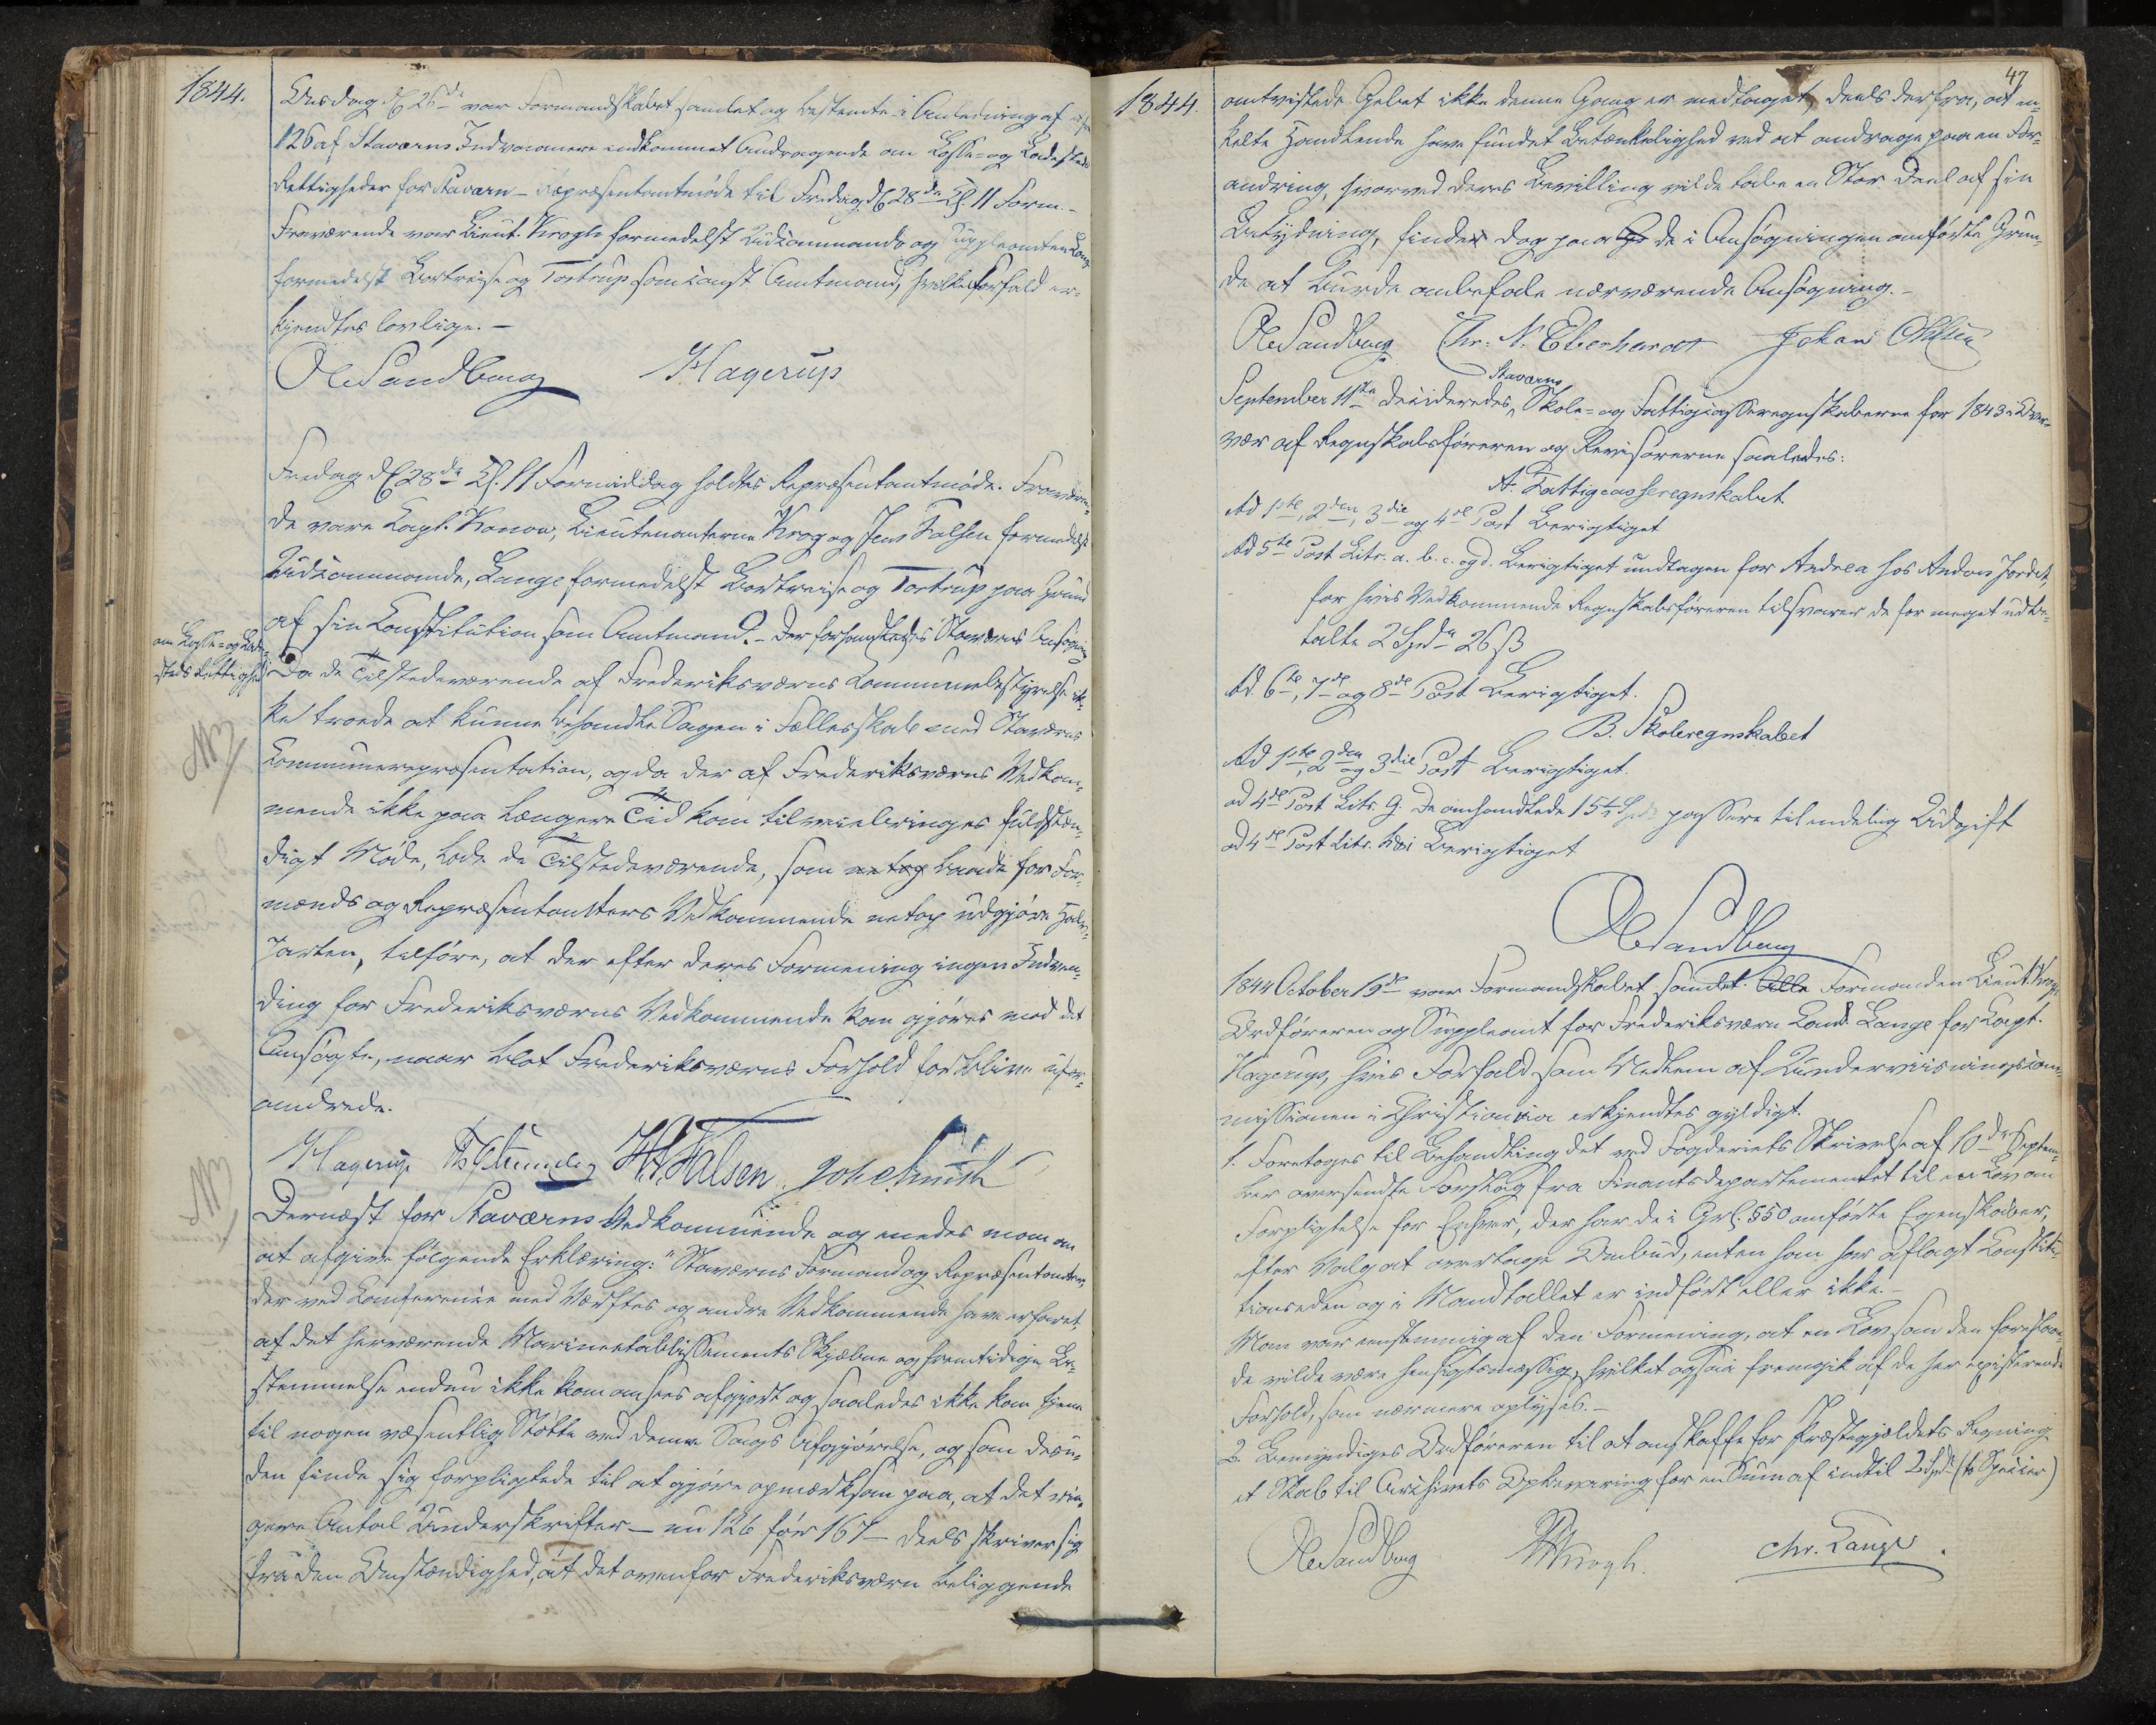 1844.
Onsdag d. 26de var Formandskabet samlet og bestemte i Anledning af et fra
126 af Staværns Indvaanere indkommet Andragende om Losse- og Ladesteds
Rettigheder for Staværn – Repræsentantmøde til Fredag d. 28de Kl. 11 Form. –
Fraværende var Lieut. Krogh formedelst Udcommando og Suppleanten Lange
formedelst Bortreise og Tostrup som const. Amtmand, hvilke Forfald er-
kjendtes lovlige. –
Ole Sandberg Hagerup
Fredag d. 28de Kl. 11 Formiddag holdtes Repræsentantmøde. Fraværen-
de vare Capt. Konow, Lieutenanterne Krog og Jens Falsen formedelst
Udcommando, Lange formedelst Bortreise og Tostrup paa Grund
af sin Constitution som Amtmand. – Der forhandledes Staværns Ansøgning
om Losse- og Lade-
steds Rettighed
Da de Tilstedeværende af Frederiksværns Communebestyrelse ik-
ke troede at kunne behandle Sagen i Fællesskab med Staværns
NB
Communerepræsentation, og da der af Frederiksværns Vedkom-
mende ikke paa længere Tid kan tilveiebringes fuldstæn-
digt Møde, lode de Tilstedeværende, som netop baade for For-
mænds og Repræsentanters Vedkommende netop udgjøre Halv-
parten, tilføre, at der efter deres Formening ingen Indven-
ding for Frederiksværns Vedkommende kan gjøres mod det
Ansøgte, naar blot Frederiksværns Forhold forblive ufor-
andrede.
Hagerup H. Falsen Joh Smith
NB
Dernæst for Staværns Vedkommende og enedes man om
at afgive følgende Erklæring: "Staværns Formænd og Repræsentanter,
der ved Conference med Værftes og andre Vedkommende have erfaret,
at det herværende Marineetablissements Skjæbne og fremtidige Be-
stemmelse endnu ikke kan ansees afgjort og saaledes ikke kan tjene
til nogen væsentlig Støtte ved denne Sags Afgjørelse, og som desu-
den finde sig forpligtede til at gjøre opmærksom paa, at det rin-
gere Antal Underskrifter – nu 126 før 167 – deels skriver sig
fra den Omstændighed, at det ovenfor Frederiksværn beliggende
47
1844.
omtvistede Gebet ikke denne Gang er medtaget, deels derfra, at en-
kelte Handlende have fundet Betænkelighed ved at andrage paa en For-
andring, hvorved deres Bevilling vilde tabe en Stor Deel af sin
Betydning, finder dog paa de i Ansøgningen anførte Grun-
de at burde anbefale nærværende Ansøgning. –
Ole Sandberg Chr. N. Eberhardt Johan Ohlsen
Staværns
September 11te decideredes Skole- og Fattigcasseregnskaberne for 1843 i Over-
vær af Regnskabsføreren og Revisorerne saaledes:
A. Fattigcasseregnskabet
Ad 1ste, 2den, 3die og 4de Post Berigtiget
Ad 5te Post Litr. a. b. c. og d. Berigtiget undtagen for Andrea hos Anders Jordet,
for hvis Vedkommende Regnskabsføreren tilsvarer de for meget udbe-
talte 2 Spd 26 ß
Ad 6te, 7de og 8de Post Berigtiget.
B. Skoleregnskabet
Ad 1ste, 2den og 3die Post Berigtiget.
ad 4de Post Litr. g. De omhandlede 15½ passere til endelig Udgift
ad 4de Post Litr. h & i Berigtiget
Ole Sandberg
1844 October 19de var Formandskabet samlet. Alle Formanden Lieut. Krogh
Ordføreren og Suppleant for Frederiksværn Cand. Lange for Capt.
Hagerup, hvis Forfald som Medlem af Underviisningscom-
missionen i Christiania erkjendtes gyldigt.
1. Foretoges til Behandling det ved Fogderiets Skrivelse af 10de Septem-
ber oversendte Forslag fra Finantsdepartementet til en Lov om
Forpligtelse for Enhver, der har de i Grl. § 50 anførte Egenskaber,
efter Valg at overtage Ombud, enten han har aflagt Constitu-
tionseden og i Mandtallet er indført eller ikke. –
Man var eenstemmig af den Formening, at en Lov som den foreslaae-
de vilde være hensigtsmæssig, hvilket ogsaa fremgik af de her existerende
Forhold, som nærmere oplyses. –
2. Bemyndiges Ordføreren til at anskaffe for Præstegjældets Regning
et Skab til Archivets Opbevaring for en Sum af indtil 2 Spd (to Specier)
Ole Sandberg Krogh. Chr. Lange.